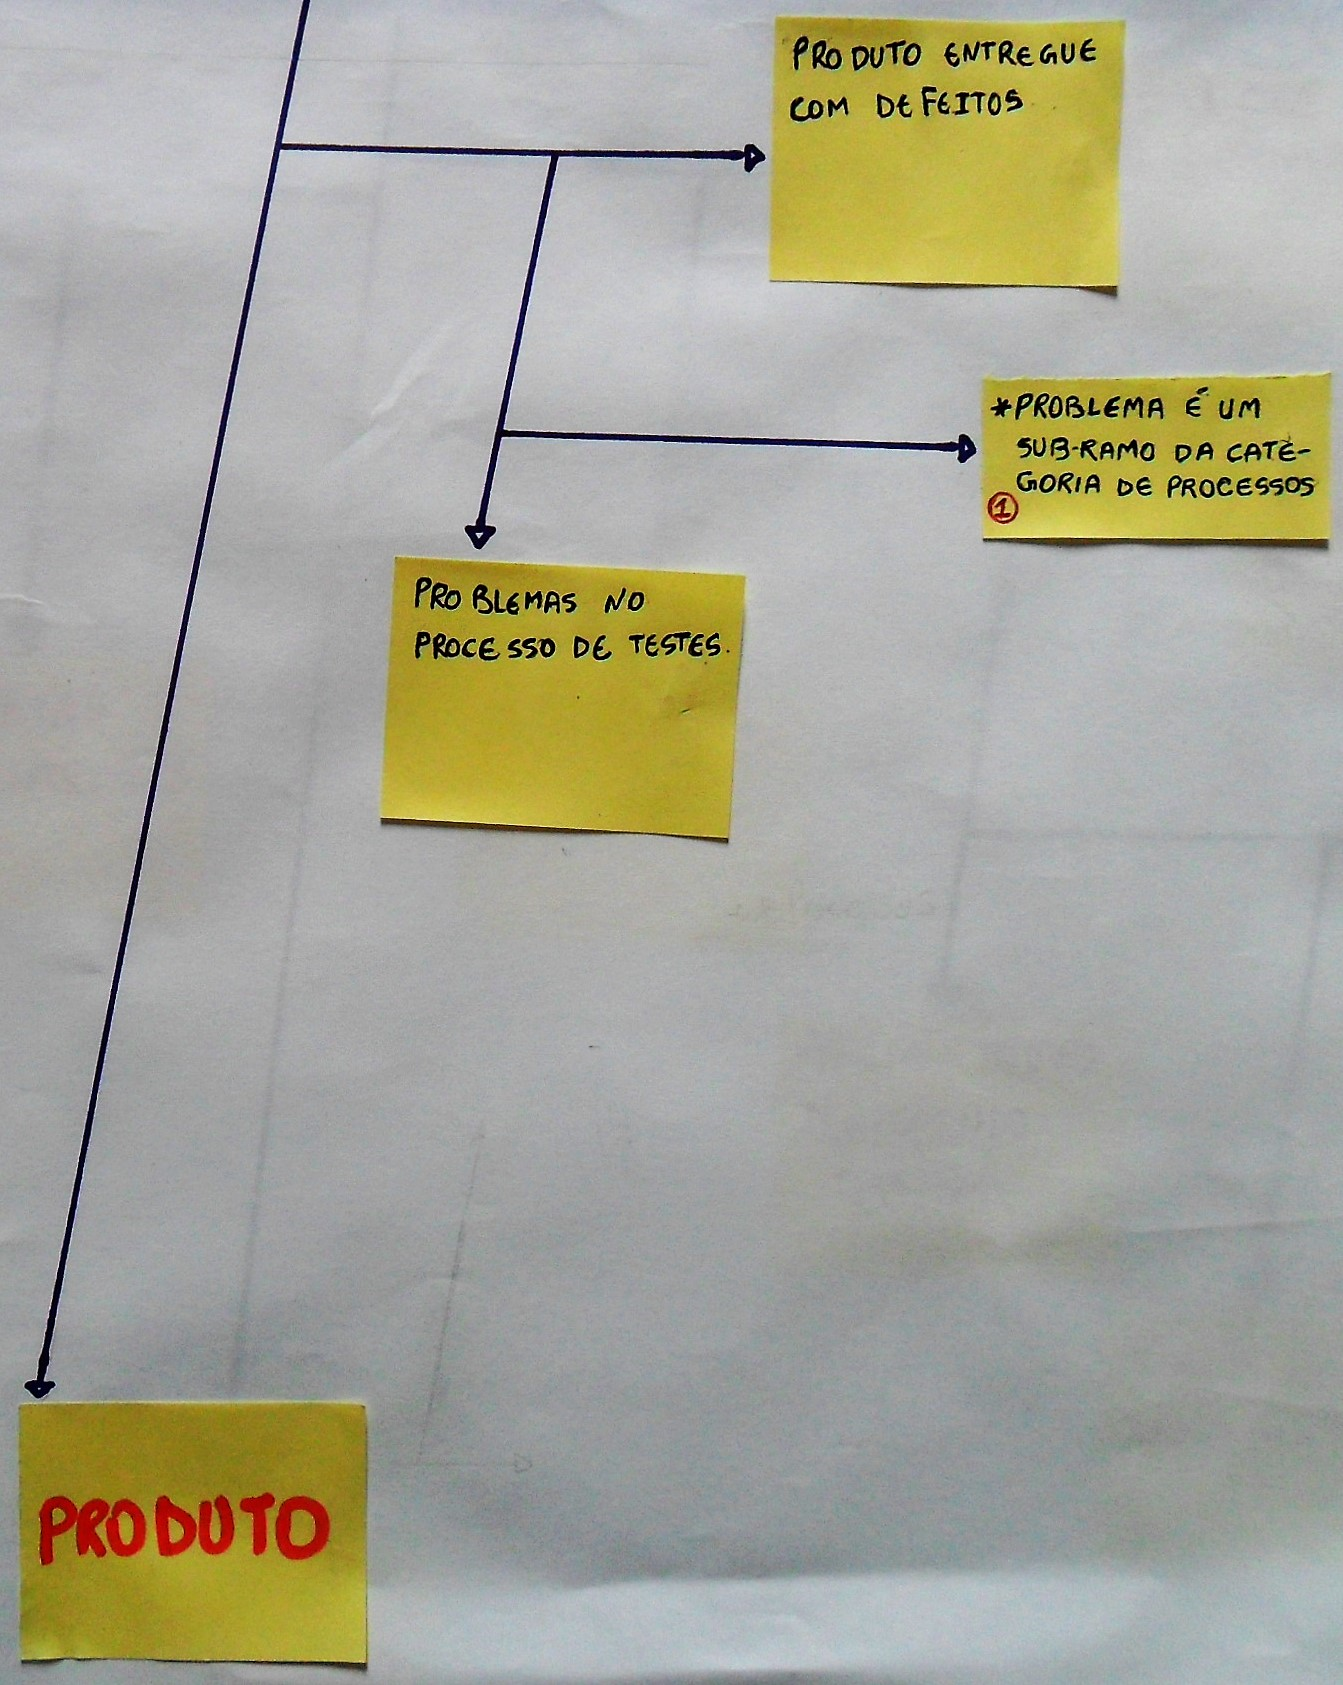 PRODUTO ENTREGUE
COM DEFEITOS
*PROBLEMA É UM
SUB-RAMO DA CATE-
GORIA DE PROCESSOS
1
PROBLEMAS NO
PROCESSO DE TESTES.
PRODUTO